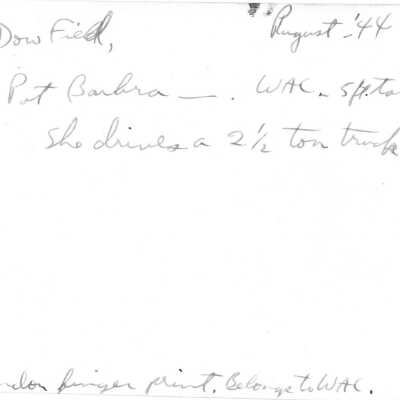 Dow Field, August - '44
Pvt Barbra —. WAC.
She drives a 2½ ton truck
finger print. Belongs to WAC.